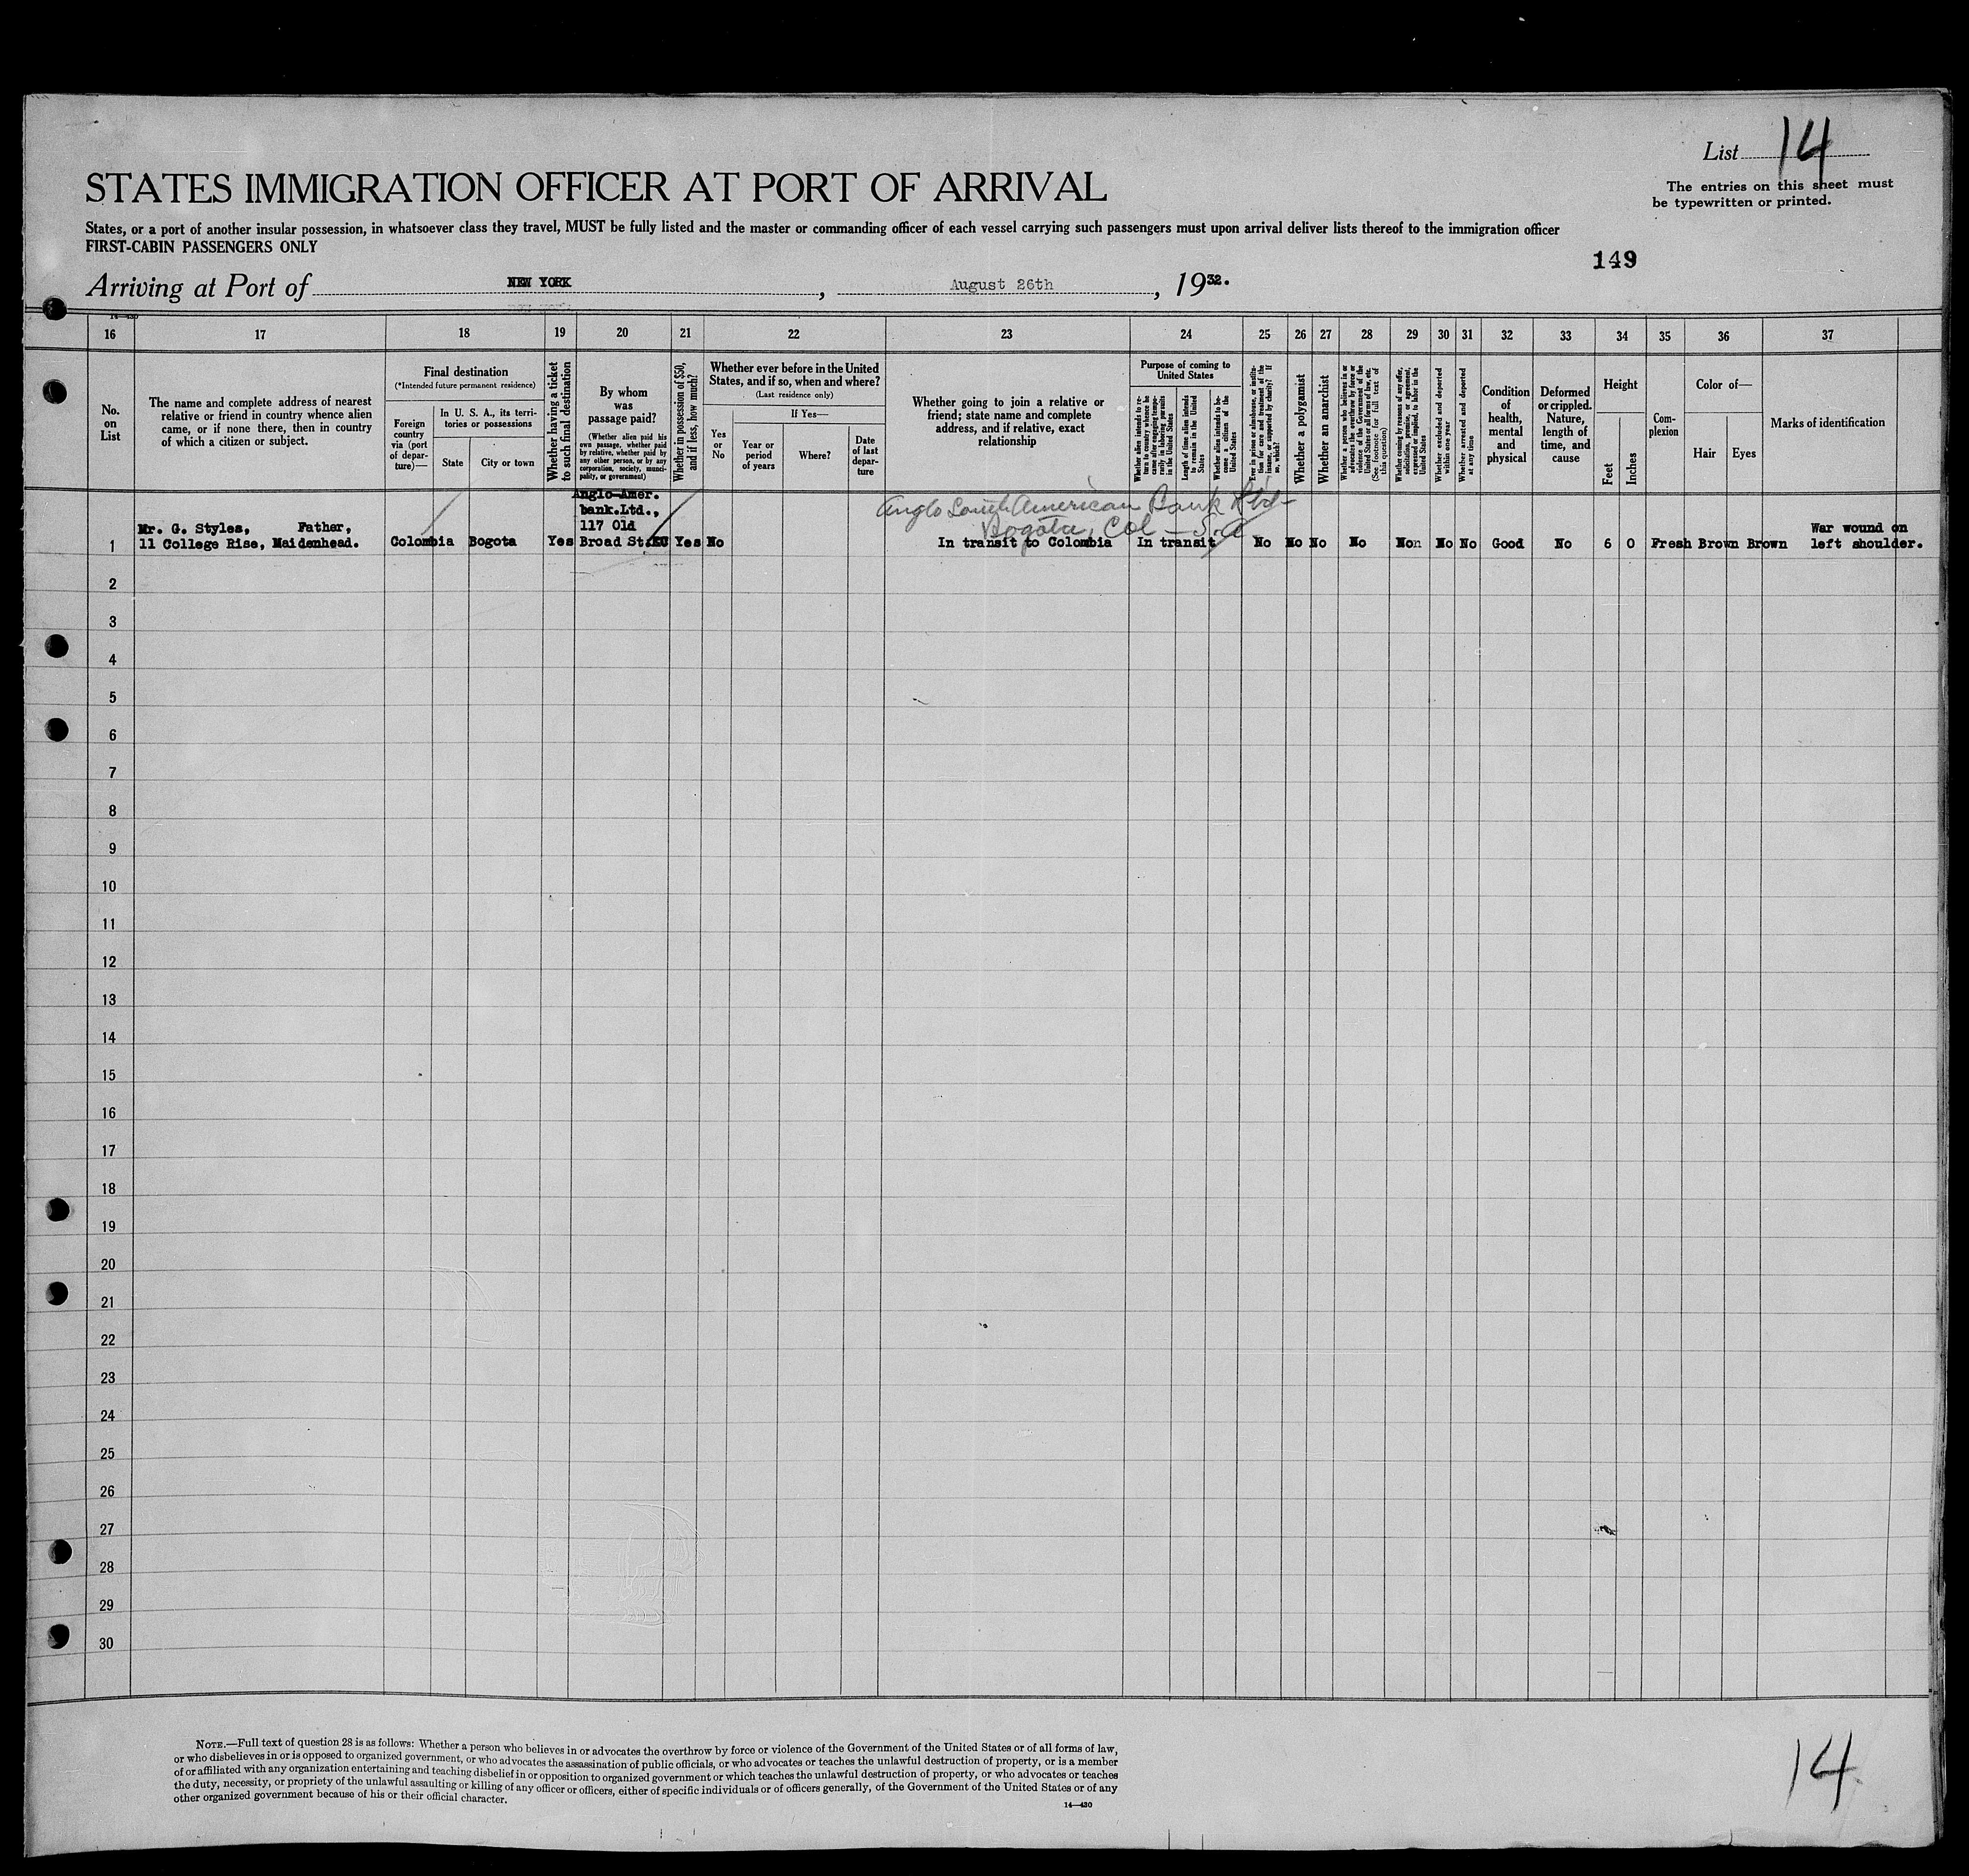 List 14
The entries on this sheet must
be typewritten or printed.
STATES IMMIGRATION OFFICER AT PORT OF ARRIVAL
States, or a port of another insular possession, in whatsoever class they travel, MUST be fully listed and the master or commanding officer of each vessel carrying such passengers must upon arrival deliver lists thereof to the immigration officer
FIRST-CABIN PASSENGERS ONLY
149
Arriving at Port of NEW YORK, August 26th, 1932.
16 17 18 19 20 21 22 23 24 25 26 27 28 29 30 31 32 33 34 35 36 37
No.
on
List
The name and complete address of nearest
relative or friend in country whence alien
came, or if none there, then in country
of which a citizen or subject.
Final destination
(*Intended future permanent residence)
Foreign
country
via (port
of depar-
ture)—
In U. S. A., its terri-
tories or possessions
State
City or town
Whether having a ticket
to such final destination
By whom
was
passage paid?
(Whether alien paid his
own passage, whether paid
by relative, whether paid by
any other person, or by any
corporation, society, munici-
pality, or government)
Whether in possession of $50,
and if less, how much?
Whether ever before in the United
States, and if so, when and where?
(Last residence only)
Yes
or
No
If Yes—
Year or
period
of years
Where?
Date
of last
depar-
ture
Whether going to join a relative or
friend; state name and complete
address, and if relative, exact
relationship
Purpose of coming to
United States
Whether alien intends to re-
turn to country whence he
came after engaging tempo-
rarily in laboring pursuits
in the United States
Length of time alien intends
to remain in the United
States
Whether alien intends to be-
come a citizen of the
United States
Ever in prison or almshouse, or institu-
tion for care and treatment of the
insane, or supported by charity? If
so, which?
Whether a polygamist
Whether an anarchist
Whether a person who believes in or
advocates the overthrow by force or
violence of the Government of the
United States or all forms of law, etc.
(See footnote for full text of
this question)
Whether coming by reasons of any offer,
solicitation, promise, or agreement,
expressed or implied, to labor in the
United States
Whether excluded and deported
within one year
Whether arrested and deported
at any time
Condition
of
health,
mental
and
physical
Deformed
or crippled.
Nature,
length of
time, and
cause
Height
Feet
Inches
Com-
plexion
Color of—
Hair
Eyes
Marks of identification
Anglo-Amer.
bank.Ltd.,
117 Old
Anglo South American Bank Ltd
Bogota, Col — S.A
Mr. G. Styles, Father,
War wound on
1 11 College Rise, Maidenhead. Colombia Bogota Yes Broad St.EC Yes No In transit to Colombia In transit No No No No Non No No Good No 6 0 Fresh Brown Brown left shoulder.
2
3
4
5
6
7
8
9
10
11
12
13
14
15
16
17
18
19
20
21
22
23
24
25
26
27
28
29
30
NOTE.—Full text of question 28 is as follows: Whether a person who believes in or advocates the overthrow by force or violence of the Government of the United States or of all forms of law,
or who disbelieves in or is opposed to organized government, or who advocates the assassination of public officials, or who advocates or teaches the unlawful destruction of property, or is a member
of or affiliated with any organization entertaining and teaching disbelief in or opposition to organized government or which teaches the unlawful destruction of property, or who advocates or teaches
the duty, necessity, or propriety of the unlawful assaulting or killing of any officer or officers, either of specific individuals or of officers generally, of the Government of the United States or of any
other organized government because of his or their official character.
14—430
14